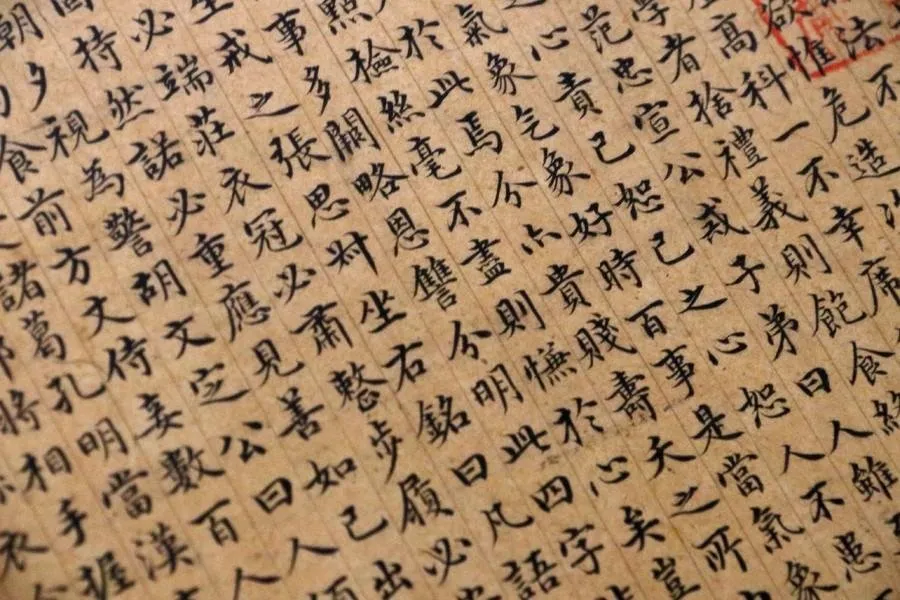 法不
惟危造
高科一不幸席
學者捨禮義則飽食終
范忠宣公戒子弟曰人雖
心責己恕己之心恕人不患
氣象气象好時百事是當氣象
於此焉分小貴賤壽夭之所
點檢絲毫不盡則慊於心矣豈
事多關略恩讎分明此四字
戒之張思叔坐右銘曰凡語
必端莊衣冠必肅整步履必
持然諾必重應見善如己出
朝夕視為警胡文定公曰人
食前方丈侍妾數百人
諸葛孔明當漢
將相手握
衣